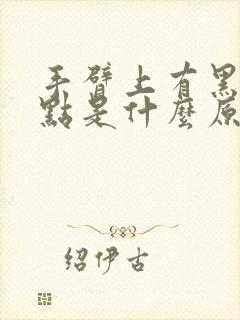 手臂上有黑
點是什麼原
紹伊古